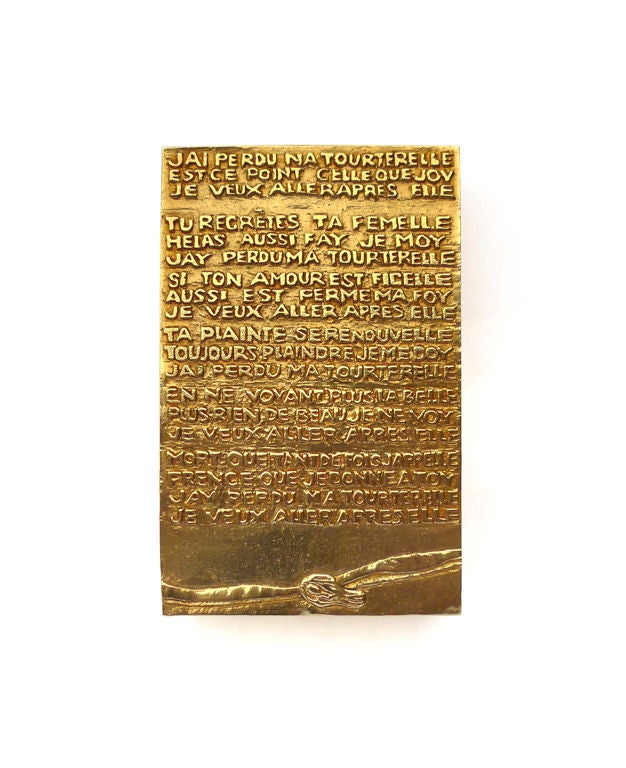 JAI PERDU NA TOURTERELLE
EST CE POINT CELLE QUE JOY
JE VEUX ALLER APRES ELLE
TU REGRÊTES TA FEMELLE
HELAS AUSSI FAY JE MOY
JAY PERDU MA TOURTERELLE
SI TON AMOUR EST FIDELLE
AUSSI EST FERME MA FOY
JE VEUX ALLER APRES ELLE
TA PLAINTE SE RENOUVELLE
TOUJOURS PLAINDRE JE ME DOY
JAI PERDU MA TOURTERELLE
EN NE VOYANT PLUS LA BELLE
PLUS RIEN DE BEAU JE NE VOY
JE VEUX ALLER APRES ELLE
MORT QUE TANT DE FOIS JAPPELLE
PRENGE QUE JE DONNE A TOY
JAY PERDU MA TOURTERELLE
JE VEUX ALLER APRES ELLE